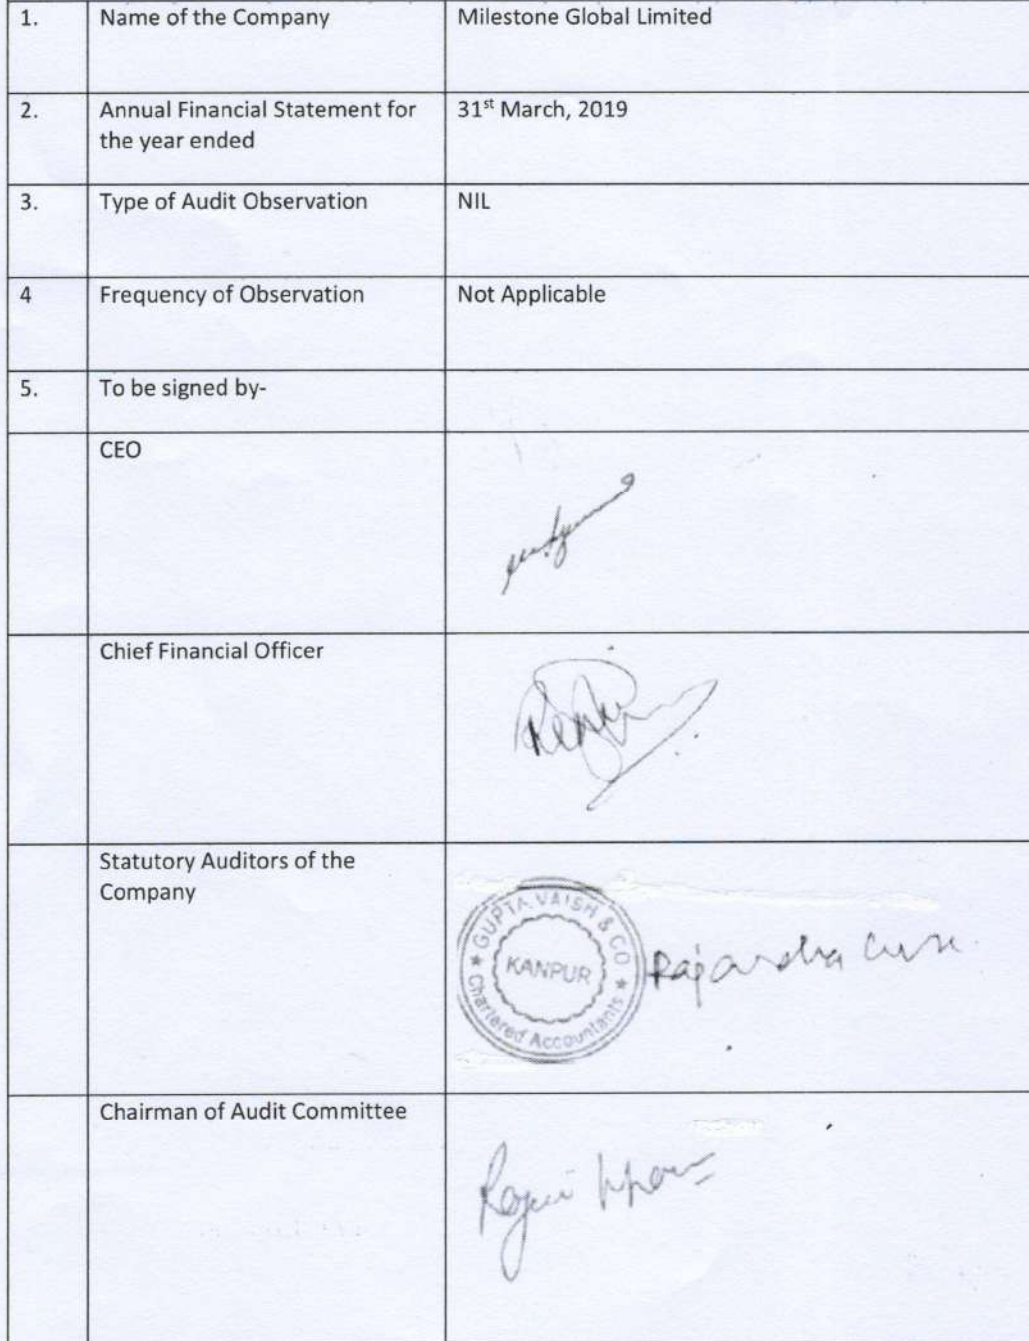 1. Name of the Company Milestone Global Limited
2. Annual Financial Statement for 31st March, 2019
the year ended
3. Type of Audit Observation NIL
4 Frequency of Observation Not Applicable
5. To be signed by-
CEO
Chief Financial Officer
Statutory Auditors of the
Company
GUPTA VAISH & CO
KANPUR
Chartered Accountants
Chairman of Audit Committee